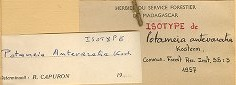 ISOTYPE
Potameia Antevaratra Kosh
Déterminavit : R. CAPURON 19
HERBIER DU SERVICE FORESTIER
MADAGASCAR
ISOTYPE de
Potameia antevaratra
Kosterm.
Commun. Forest Res. Inst. 55: 3
1957